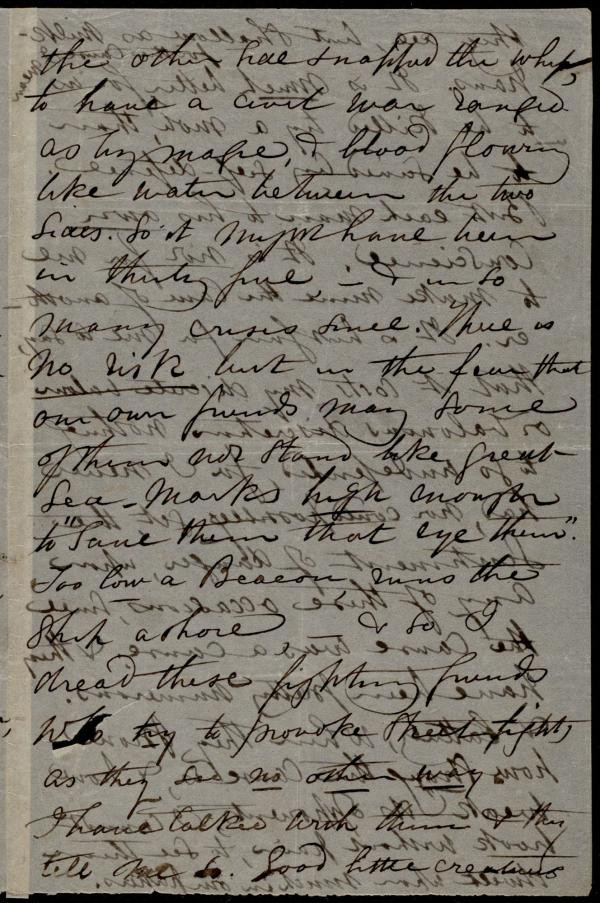 the other side snapped the whip,
to have a civil war ranged
as by magic, & blood flowing
like water between the two
sides. So it might have been
in thirty five – & in so
many crisis since. There is
no risk but in the fear that
our own friends may some
of them not stand like great
sea-marks high enough
to "Save them that eye them".
Too low a Beacon, runs the
Ship ashore & so I
dread these fighting friends
who try to provoke street fights,
as they see no other way
I have talked with them & they
tell me so. Good little creatures